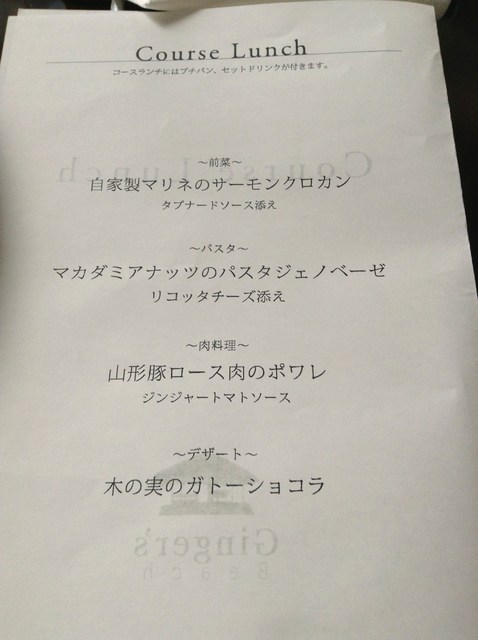 Course Lunch
コースランチにはプチパン、セットドリンクが付きます。
～前菜～
自家製マリネのサーモンクロカン
タプナードソース添え
～パスタ～
マカダミアナッツのパスタジェノベーゼ
リコッタチーズ添え
～肉料理～
山形豚ロース肉のポワレ
ジンジャートマトソース
～デザート～
木の実のガトーショコラ
Ginger's
Beach